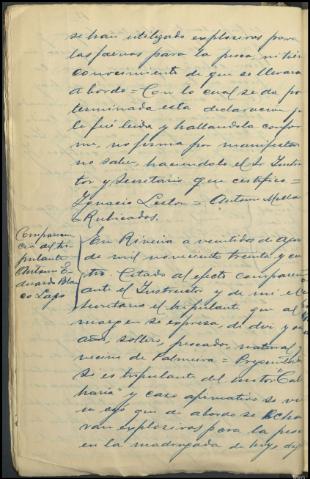 se han utilizado explosivos para
las faenas para la pesca, ni tiene
conocimiento de que se llevara
abordo = Con lo cual se da por
terminada esta declaración que
le fué leida y hallandola confor
me, no firma por manifestar
no saber, haciendolo el Sr Instruc
tor y Secretario que certifico =
Ignacio = Antonio
Rubricados.
Comparecen
cia del tri
pulante
Antonio E
duardo Blan
co Lago
En Riveira a veintidos de
de mil novecientos treinta y cua
tro Citado al efecto comparece
ante el Instructor y de mi el
Secretario el tripulante que al
margen se expresa, de diez y
años, soltero, pescador, natural y
vecino de Palmeira =
Si es tripulante del motor
y caso afirmativo se vi
o oyó que de abordo se echa
ran explosivos para la pesca
en la madrugada de hoy dijo